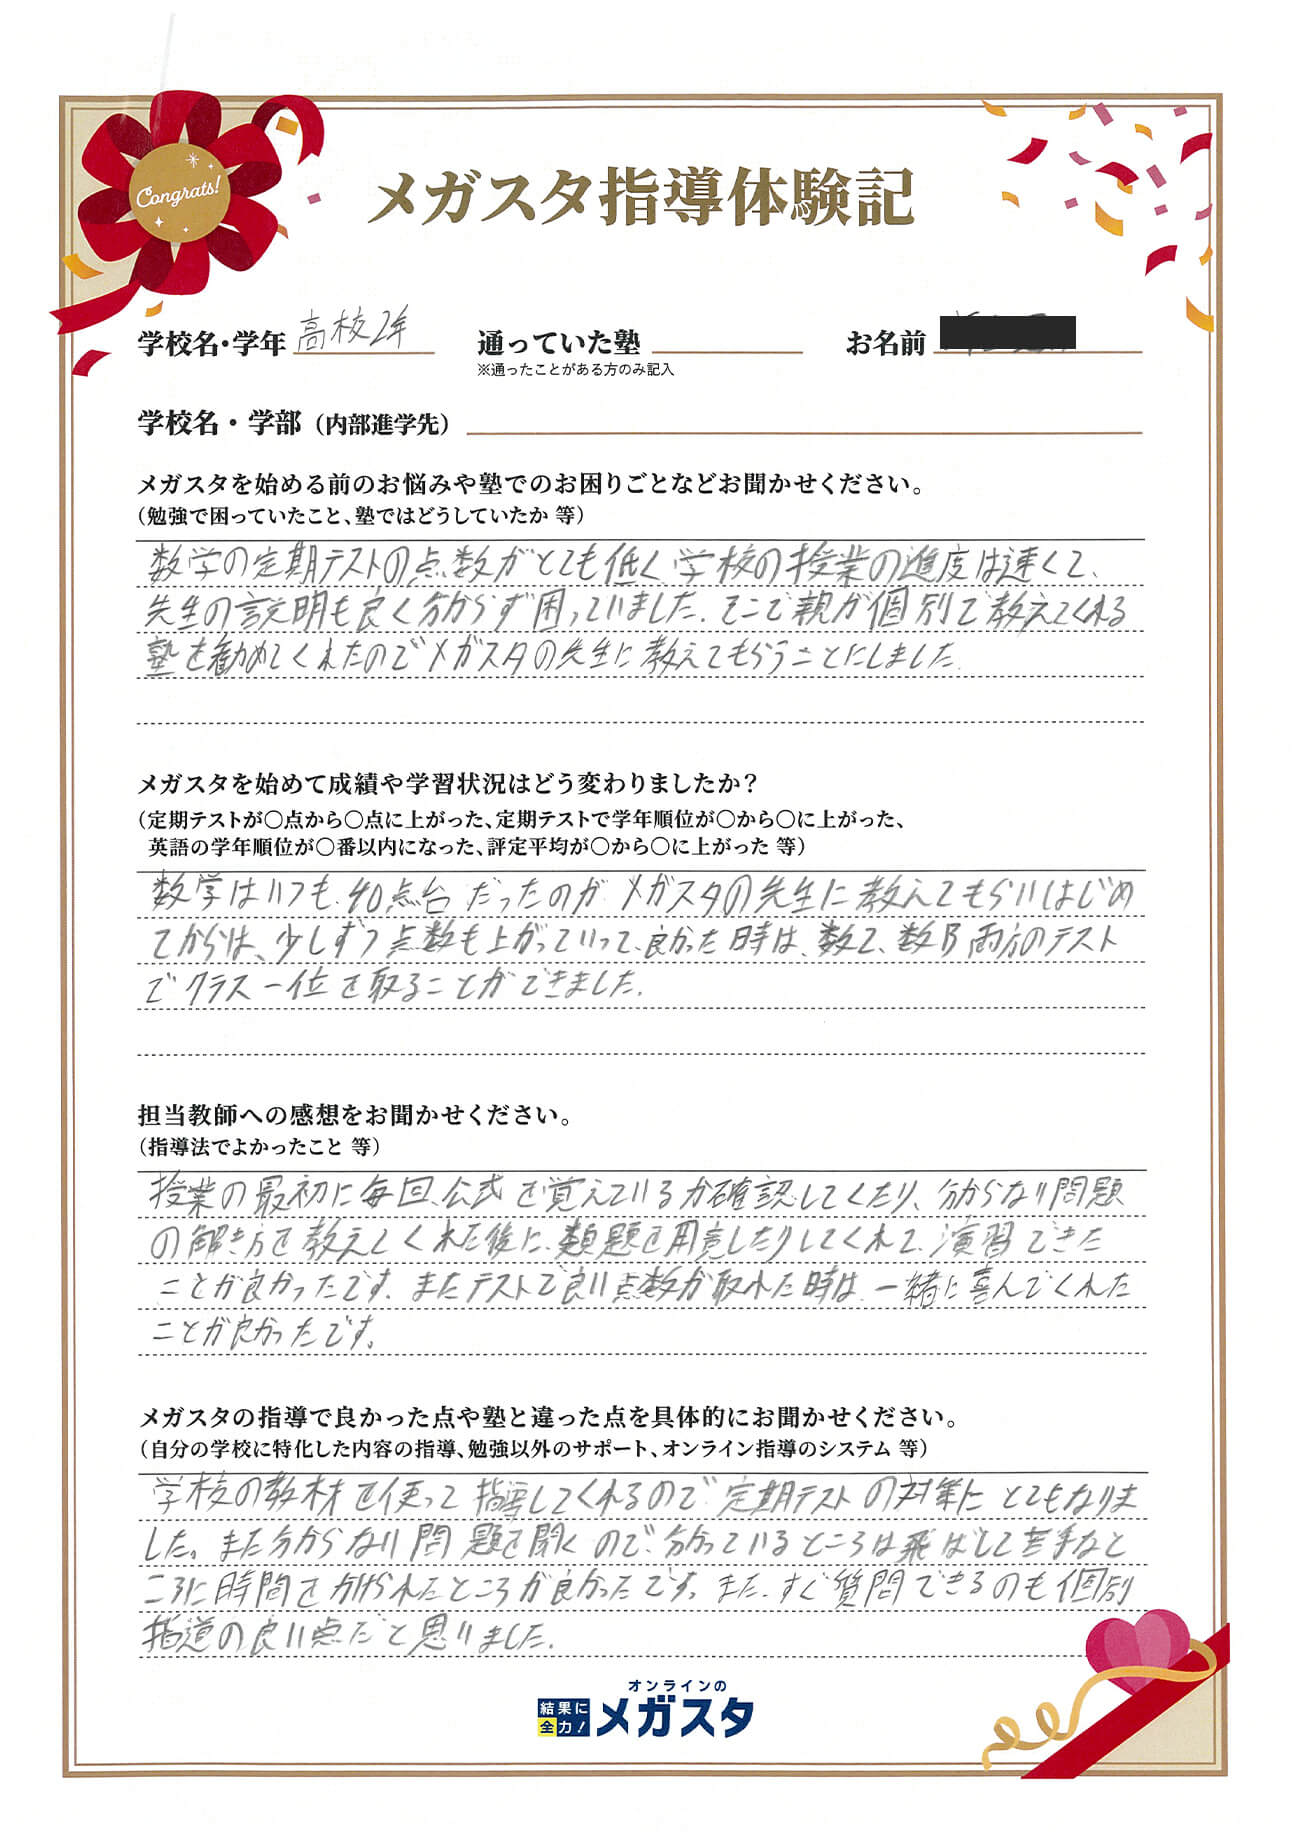 Congrats!
メガスタ指導体験記
学校名・学年 高校2年 通っていた塾 お名前
※通ったことがある方のみ記入
学校名・学部（内部進学先）
メガスタを始める前のお悩みや塾でのお困りごとなどお聞かせください。
（勉強で困っていたこと、塾ではどうしていたか 等）
数学の定期テストの点数がとても低く、学校の授業の進度は速くて、
先生の説明も良く分からず困っていました。そこで親が個別で教えてくれる
塾を勧めてくれたのでメガスタの先生に教えてもらうことにしました。
メガスタを始めて成績や学習状況はどう変わりましたか？
（定期テストが〇点から〇点に上がった、定期テストで学年順位が〇から〇に上がった、
英語の学年順位が〇番以内になった、評定平均が〇から〇に上がった 等）
数学はいつも40点台だったのが、メガスタの先生に教えてもらいはじめ
てからは、少しずつ点数も上がっていって、良かった時は、数2、数B両方のテスト
でクラス一位を取ることができました。
担当教師への感想をお聞かせください。
（指導法でよかったこと 等）
授業の最初に毎回、公式を覚えているか確認してくたり、分からない問題
の解き方を教えてくれた後に、類題を用意したりしてくれて、演習できた
ことが良かったです。またテストで良い点数が取れた時は、一緒に喜んでくれた
ことが良かったです。
メガスタの指導で良かった点や塾と違った点を具体的にお聞かせください。
（自分の学校に特化した内容の指導、勉強以外のサポート、オンライン指導のシステム 等）
学校の教材を使って指導してくれるので、定期テストの対策にとてもなりま
した。また分からない問題を聞くので、分かっているところは飛ばして苦手なと
ころに時間をかけられたところが良かったです。また、すぐ質問できるのも個別
指導の良い点だと思いました。
オンラインの
結果に全力！メガスタ